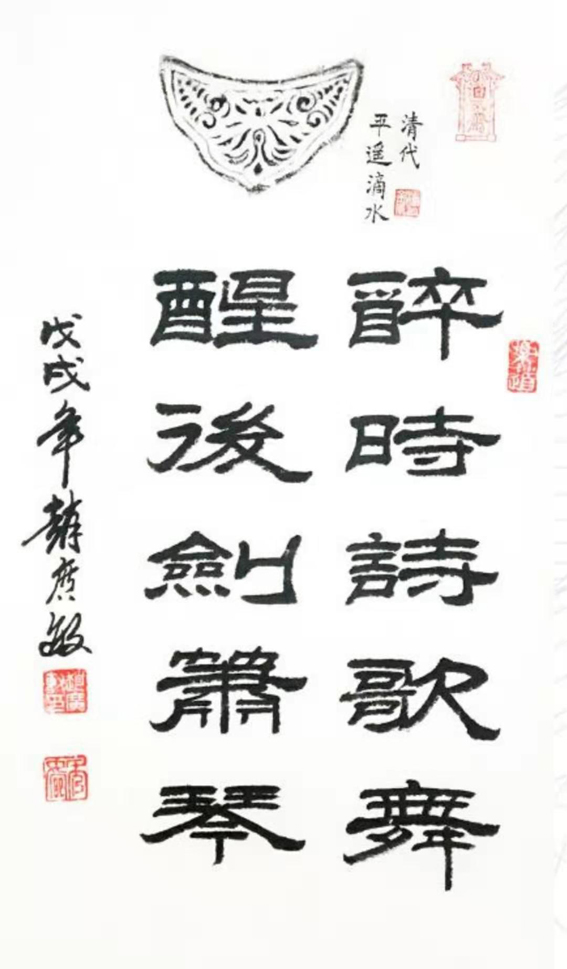 醉時詩歌舞
醒後劍簫琴
清代
平遥滴水
戊戌年趙廣敏